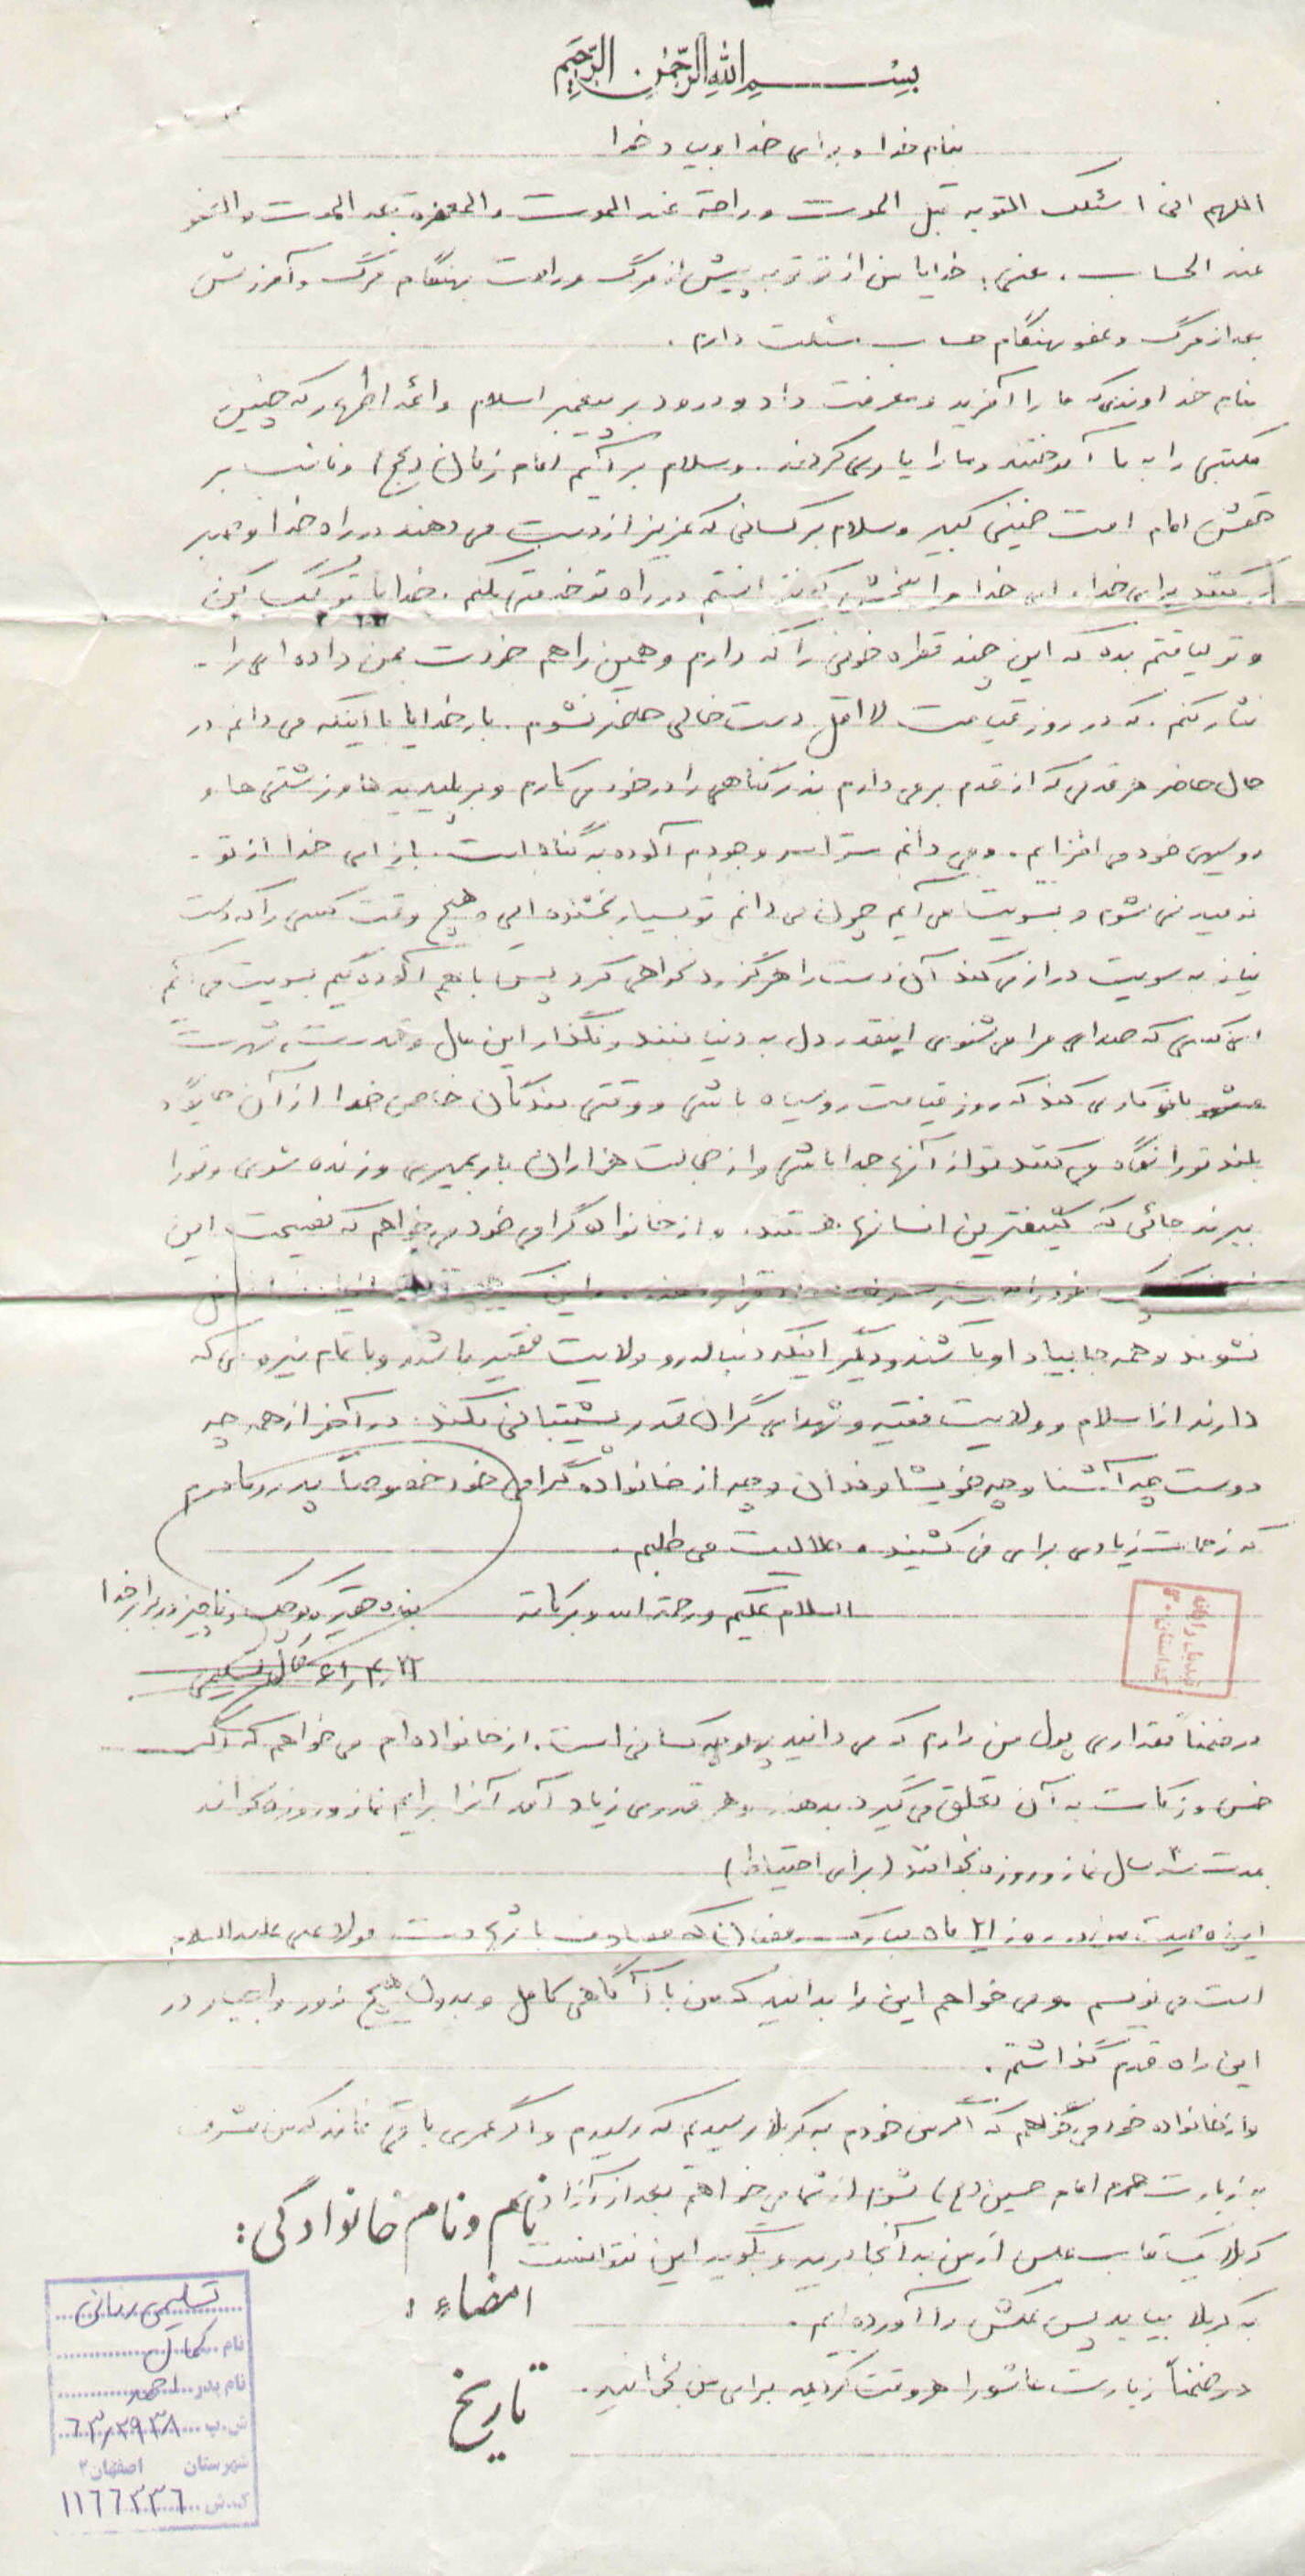 بسم الله الرحمن الرحیم
بنام خدا و برای خدا و بیاد خدا
اللهم انی اسئلک التوبه قبل الموت و راحة عند الموت والمغفرة بعد الموت والعفو
عند الحساب. یعنی: خدایا من از تو توبه پیش از مرگ و راحت بهنگام مرگ و آمرزش
بعد از مرگ و عفو بهنگام حساب مسئلت دارم.
بنام خداوندی که ما را آفرید و معرفت داد و درود بر پیغمبر اسلام و ائمه اطهار که چنین
مکتبی را به ما آموختند و ما را یاری کردند. و سلام بر امام زمان (عج) و نائب بر
حقش امام امت خمینی کبیر و سلام بر کسانی که عزیز از دست می دهند در راه خدا و صبر
می کنند برای خدا. ای خدا مرا ببخش که نتوانستم در راه تو خدمتی بکنم. خدایا تو کمک کن
و تو لیاقتم بده که این چند قطره خونی را که دارم و همین را هم خودت بمن داده ای را.
نثار کنم. که در روز قیامت لااقل دست خالی حاضر نشوم. بار خدایا با اینکه می دانم در
حال حاضر هر قدمی که از قدم برمی دارم بذر گناهی را در خود می کارم و بر پلیدیها و زشتی ها و
روسیهی خود می افزایم. و می دانم سراسر وجودم آلوده به گناه است. باز ای خدا از تو.
نومید نمی شوم و بسویت می آیم چون می دانم تو بسیار بخشنده ایی و هیچ وقت کسی را که دست
نیاز به سویت دراز می کند آن دست را هرگز رد نخواهی کرد پس با همه آلوده گیم بسویت می آیم
ای کسی که صدای مرا می شنوی اینقدر دل به دنیا نبند و نگذار این مال و قدرت، شهرت
با تو کاری کند که روز قیامت روسیاه باشی و وقتی بندگان خاص خدا از آن
بلند تو را نگاه می کنند تو از آنها جدا باشی و از خجالت هزاران بار بمیری و زنده شوی و تو را
ببرند جائی که کثیفترین انسانها هستند. و از خانواده گرامی خود می خواهم که نصیحت این
نشوند و همه جا بیاد او باشند و دیگر اینکه دنباله رو ولایت فقیه باشند و با تمام نیروئی که
دارند از اسلام و ولایت فقیه و شهدای گران قدر پشتیبانی بکنند. در آخر از همه چه
دوست چه آشنا و چه خویشاوندان و چه از خانواده گرامی خود خصوصاً پدر و مادرم
که زحمات زیادی برای من کشیدند حلالیت می طلبم.
السلام علیکم و رحمة الله و برکاته بنده حقیر و کوچک و ناچیز در برابر خدا
۶۱/۴/۲۲ کمال تسلیمی
در ضمناً مقداری پول من دارم که می دانید پهلوی چه کسانی است. از خانواده ام می خواهم که اگر
خمس و زکات به آن تعلق می گیرد بدهند و هر قدری زیاد آمد آنرا برایم نماز و روزه بخوانند
مدت ۳ سال نماز و روزه بخوانند (برای احتیاط)
این وصیت من در روز ۲۱ ماه مبارک رمضان که مصادف با شهادت مولا علی علیه السلام
است می نویسم و می خواهم این را بدانید که من با آگاهی کامل و بدون هیچ زور و اجبار در
این راه قدم گذاشتم.
و از خانواده خود می خواهم که اگر من خودم به کربلا رسیدم که رسیدم و اگر عمری باقی نماند که من مشرف
به زیارت حرم امام حسین (ع) بشوم از شما می خواهم بعد از آزاد
کربلا یک قاب عکس از من به آنجا ببرید و بگوئید این نتوانست
به کربلا بیاید پس عکسش را آورده ایم.
در ضمناً زیارت عاشورا هر وقت کردید برای من بخوانید.
نام و نام خانوادگی:
امضاء:
تاریخ
تسلیمی رنانی
نام کمال
نام پدر احمد
ش.پ ۶۳/۲۹۳۸
شهرستان اصفهان ۲
کد.ش ۱۱۶۶۳۳۶